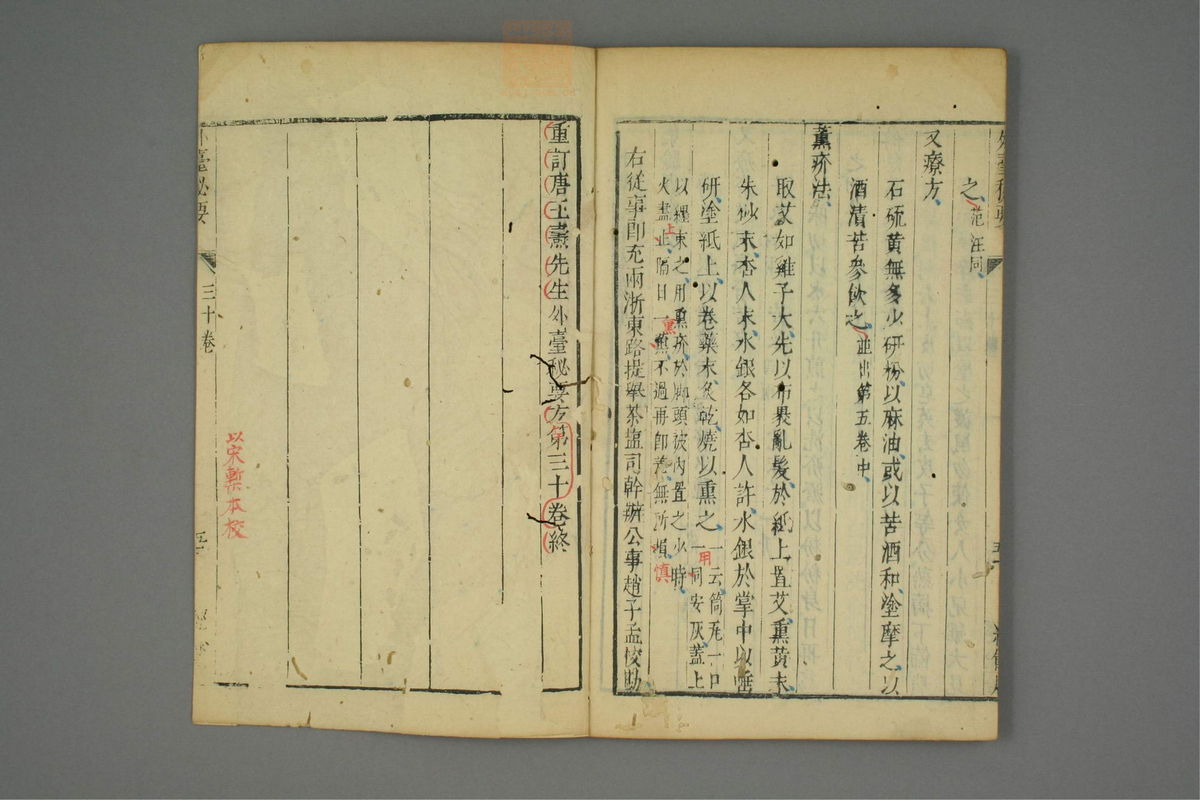 外臺秘要
之范汪同
又療方
石硫黃無多少研粉以麻油或以苦酒和塗摩之以
酒漬苦參飲之並出第五卷中
熏疥法
取艾如雞子大先以布裹亂髮於紙上置艾熏黃末
朱砂末杏人末水銀各如杏人許水銀於掌中以唾
研塗紙上以卷藥末炙乾燒以熏之一云筒瓦一口
用
一同安灰蓋上
以纒束之用熏疥於脚頭被內置之少時
火盡止隔日一熏不過再即差無所損
上
熏
慎
右從事郎充兩浙東路提舉茶鹽司幹辦公事趙子孟校勘
重訂唐王燾先生外臺秘要方第三十卷終
外臺秘要
三十卷
以宋槧本校